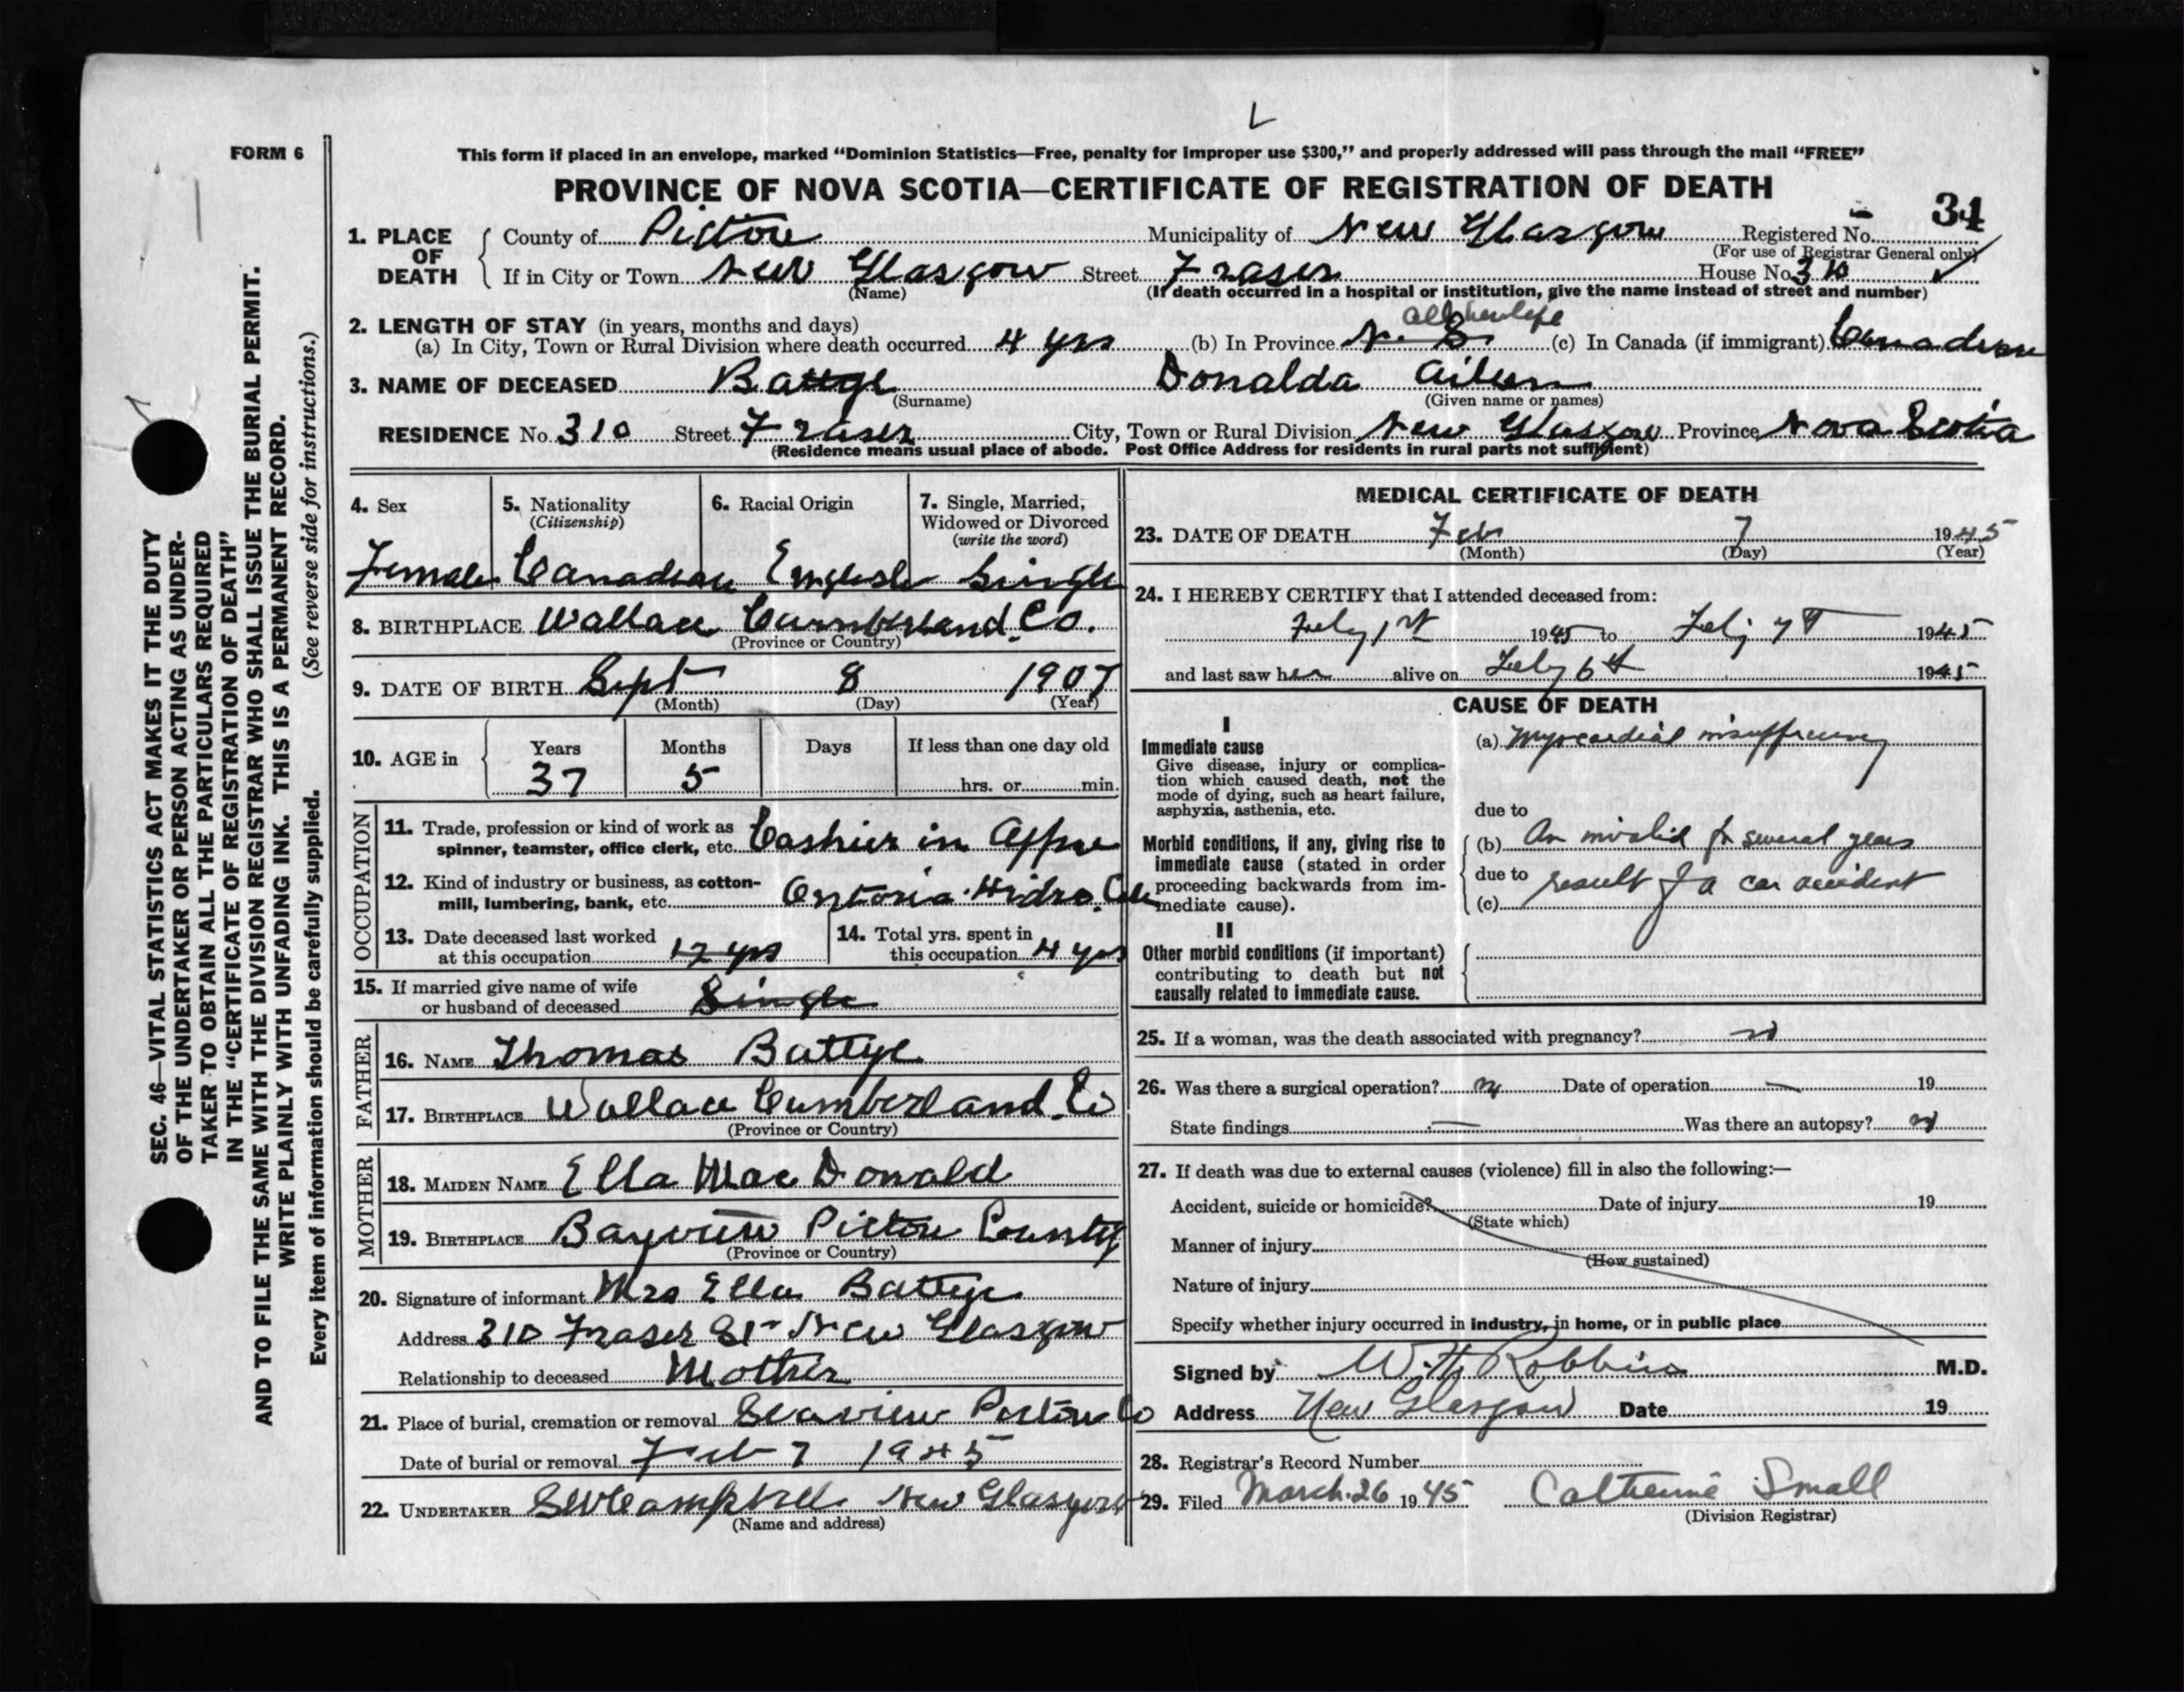 FORM 6
This form if placed in an envelope, marked “Dominion Statistics—Free, penalty for improper use $300,” and properly addressed will pass through the mail “FREE”
PROVINCE OF NOVA SCOTIA—CERTIFICATE OF REGISTRATION OF DEATH
34
1. PLACE OF DEATH
County of Pictou Municipality of New Glasgow Registered No.
(For use of Registrar General only)
If in City or Town New Glasgow Street Fraser House No. 310
(Name)
(If death occurred in a hospital or institution, give the name instead of street and number)
2. LENGTH OF STAY (in years, months and days)
all her life
(a) In City, Town or Rural Division where death occurred 4 yrs (b) In Province N. S. (c) In Canada (if immigrant) Canadian
3. NAME OF DECEASED Battye Donalda Aileen
(Surname) (Given name or names)
RESIDENCE No. 310 Street Fraser City, Town or Rural Division New Glasgow Province Nova Scotia
(Residence means usual place of abode. Post Office Address for residents in rural parts not sufficient)
4. Sex
Female
5. Nationality
(Citizenship)
Canadian
6. Racial Origin
English
7. Single, Married,
Widowed or Divorced
(write the word)
Single
8. BIRTHPLACE Wallace Cumberland Co.
(Province or Country)
9. DATE OF BIRTH Sept 8 1907
(Month) (Day) (Year)
10. AGE in
Years Months Days If less than one day old
37 5 hrs. or min.
OCCUPATION
11. Trade, profession or kind of work as
spinner, teamster, office clerk, etc. Cashier in
12. Kind of industry or business, as cotton-
mill, lumbering, bank, etc. Ontario Hidro
13. Date deceased last worked
at this occupation 12 yrs
14. Total yrs. spent in
this occupation 4 yrs
15. If married give name of wife
or husband of deceased Single
FATHER
16. NAME Thomas Battye
17. BIRTHPLACE Wallace Cumberland Co
(Province or Country)
MOTHER
18. MAIDEN NAME Ella MacDonald
19. BIRTHPLACE Bayview Pictou County
(Province or Country)
20. Signature of informant Mrs Ella Battye
Address 310 Fraser St New Glasgow
Relationship to deceased Mother
21. Place of burial, cremation or removal Seaview Pictou Co
Date of burial or removal Feb 7 1945
22. UNDERTAKER Campbell New Glasgow
(Name and address)
MEDICAL CERTIFICATE OF DEATH
23. DATE OF DEATH Feb 7 1945
(Month) (Day) (Year)
24. I HEREBY CERTIFY that I attended deceased from:
Feby 1st 1945 to Feby 7th 1945
and last saw her alive on Feby 6th 1945
CAUSE OF DEATH
I
Immediate cause
Give disease, injury or complica-
tion which caused death, not the
mode of dying, such as heart failure,
asphyxia, asthenia, etc.
(a) Myocardial insufficiency
due to
Morbid conditions, if any, giving rise to
immediate cause (stated in order
proceeding backwards from im-
mediate cause).
(b) An invalid for several years
due to result of a car accident
(c)
II
Other morbid conditions (if important)
contributing to death but not
causally related to immediate cause.
25. If a woman, was the death associated with pregnancy? no
26. Was there a surgical operation? no Date of operation — 19
State findings — Was there an autopsy? no
27. If death was due to external causes (violence) fill in also the following:—
Accident, suicide or homicide? Date of injury 19
(State which)
Manner of injury
(How sustained)
Nature of injury
Specify whether injury occurred in industry, in home, or in public place
Signed by W. H. Robbins M.D.
Address New Glasgow Date 19
28. Registrar's Record Number
29. Filed March 26 1945 Catherine Small
(Division Registrar)
SEC. 46—VITAL STATISTICS ACT MAKES IT THE DUTY
OF THE UNDERTAKER OR PERSON ACTING AS UNDER-
TAKER TO OBTAIN ALL THE PARTICULARS REQUIRED
IN THE “CERTIFICATE OF REGISTRATION OF DEATH”
AND TO FILE THE SAME WITH THE DIVISION REGISTRAR WHO SHALL ISSUE THE BURIAL PERMIT.
WRITE PLAINLY WITH UNFADING INK. THIS IS A PERMANENT RECORD.
Every item of information should be carefully supplied. (See reverse side for instructions.)